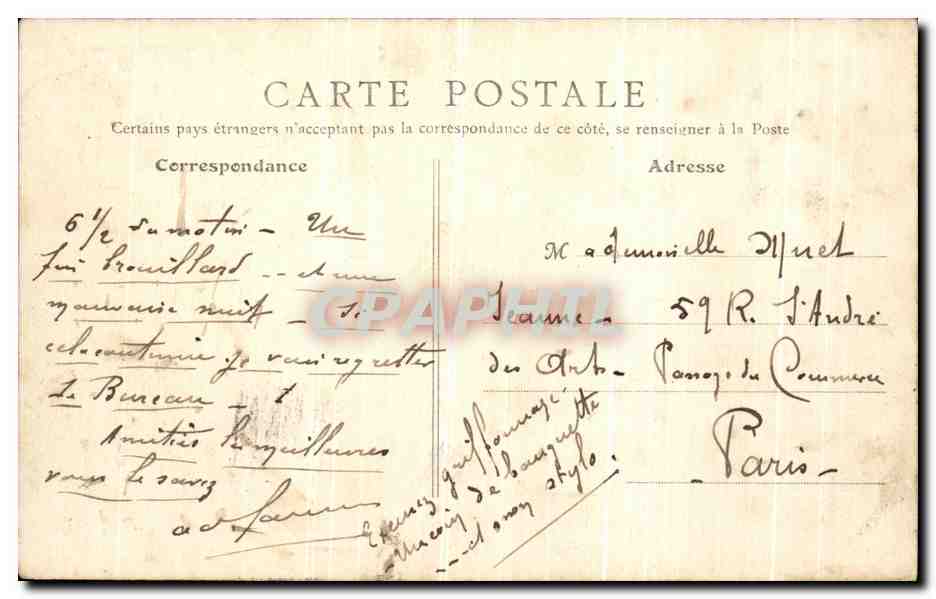 CARTE POSTALE
Certains pays étrangers n'acceptant pas la correspondance de ce côté, se renseigner à la Poste
Correspondance
Adresse
6 1/2 du matin - Un
fin brouillard -- et une
mauvaise nuit - Si
cela continue je vais regretter
le Bureau - !
Amitiés les meilleures
vous le savez
Mademoiselle
Jeanne - 59 R. St André
des Arts - Passage du Commerce
Paris -
Excusez griffonnage
un coin de banquette
--- et mon stylo.
CPAPHIL